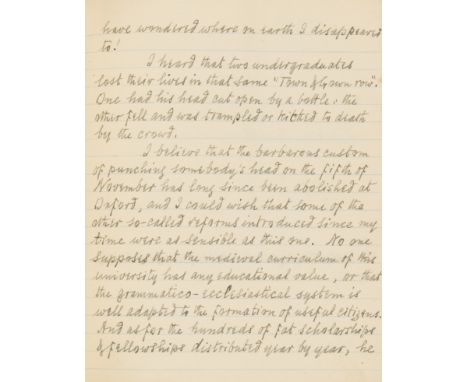 have wondered where on earth I disappeared
to!
I heard that two undergraduates
lost their lives in that same "Town & Gown row".
One had his head cut open by a bottle; the
other fell and was trampled or kicked to death
by the crowd.
I believe that the barbarous custom
of punching somebody's head on the fifth of
November has long since been abolished at
Oxford, and I could wish that some of the
other so-called reforms introduced since my
time were as sensible as this one. No one
supposes that the medieval curriculum of this
university has any educational value, or that
the grammatico-ecclesiastical system is
well adapted to the formation of useful citizens.
And as for the hundreds of fat scholarships
& fellowships distributed year by year, he